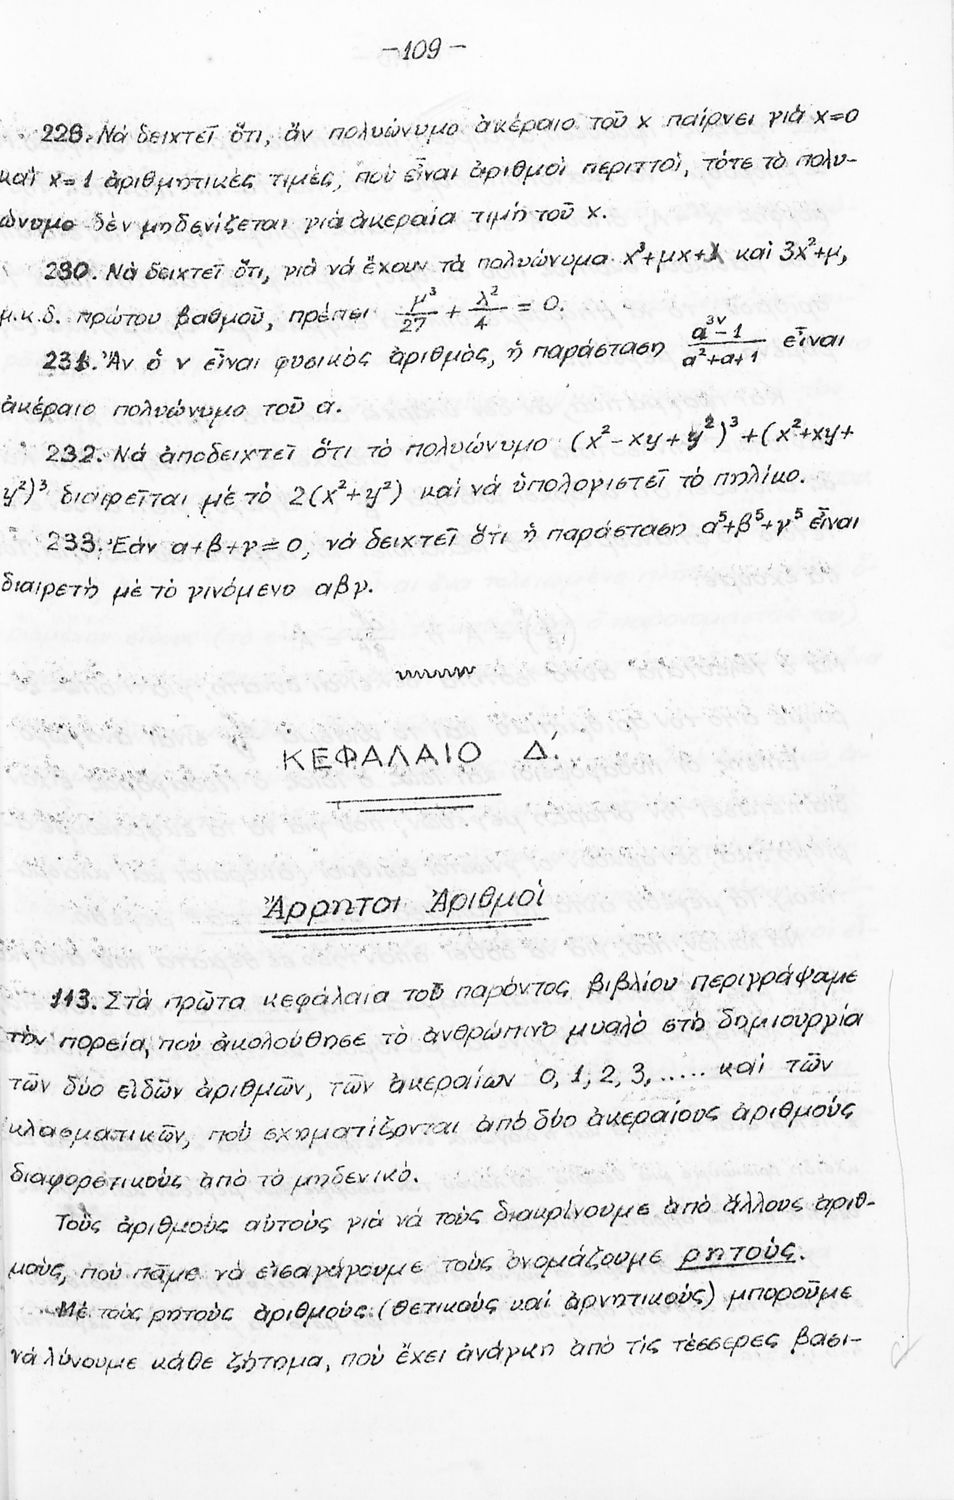 -109-
229. Νὰ δειχτεῖ ὅτι, ἄν πολυώνυμο ἀκέραιο τοῦ x παίρνει γιὰ x=0
καὶ x=1 ἀριθμητικὲς τιμὲς, ποὺ εἶναι ἀριθμοὶ περιττοὶ, τότε τὸ πολυ-
ώνυμο δὲν μηδενίζεται γιὰ ἀκεραία τιμὴ τοῦ x.
230. Νὰ δειχτεῖ ὅτι, γιὰ νὰ ἔχουν τὰ πολυώνυμα x³+μx+λ καὶ 3x²+μ,
μ.κ.δ. πρώτου βαθμοῦ, πρέπει μ³/27 + λ²/4 = 0.
231. Ἄν ὁ ν εἶναι φυσικὸς ἀριθμὸς, ἡ παράσταση (α^{3ν}-1)/(α²+α+1) εἶναι
ἀκέραιο πολυώνυμο τοῦ α.
232. Νὰ ἀποδειχτεῖ ὅτι τὸ πολυώνυμο (x²-xy+y²)³+(x²+xy+
y²)³ διαιρεῖται μὲ τὸ 2(x²+y²) καὶ νὰ ὑπολογιστεῖ τὸ πηλίκο.
233. Ἐὰν α+β+γ=0, νὰ δειχτεῖ ὅτι ἡ παράσταση α⁵+β⁵+γ⁵ εἶναι
διαιρετὴ μὲ τὸ γινόμενο αβγ.
ΚΕΦΑΛΑΙΟ Δ.
Ἄρρητοι Ἀριθμοὶ
113. Στὰ πρῶτα κεφάλαια τοῦ παρόντος βιβλίου περιγράψαμε
τὴν πορεία, ποὺ ἀκολούθησε τὸ ἀνθρώπινο μυαλὸ στὴ δημιουργία
τῶν δύο εἰδῶν ἀριθμῶν, τῶν ἀκεραίων 0, 1, 2, 3, ..... καὶ τῶν
κλασματικῶν, ποὺ σχηματίζονται ἀπὸ δύο ἀκεραίους ἀριθμοὺς
διαφορετικοὺς ἀπὸ τὸ μηδενικὸ.
Τοὺς ἀριθμοὺς αὐτοὺς γιὰ νὰ τοὺς διακρίνουμε ἀπὸ ἄλλους ἀριθ-
μοὺς, ποὺ πᾶμε νὰ εἰσαγάγουμε τοὺς ὀνομάζουμε ρητοὺς.
Μὲ τοὺς ρητοὺς ἀριθμοὺς (θετικοὺς καὶ ἀρνητικοὺς) μποροῦμε
νὰ λύνουμε κάθε ζήτημα, ποὺ ἔχει ἀνάγκη ἀπὸ τὶς τέσσερες βασι-